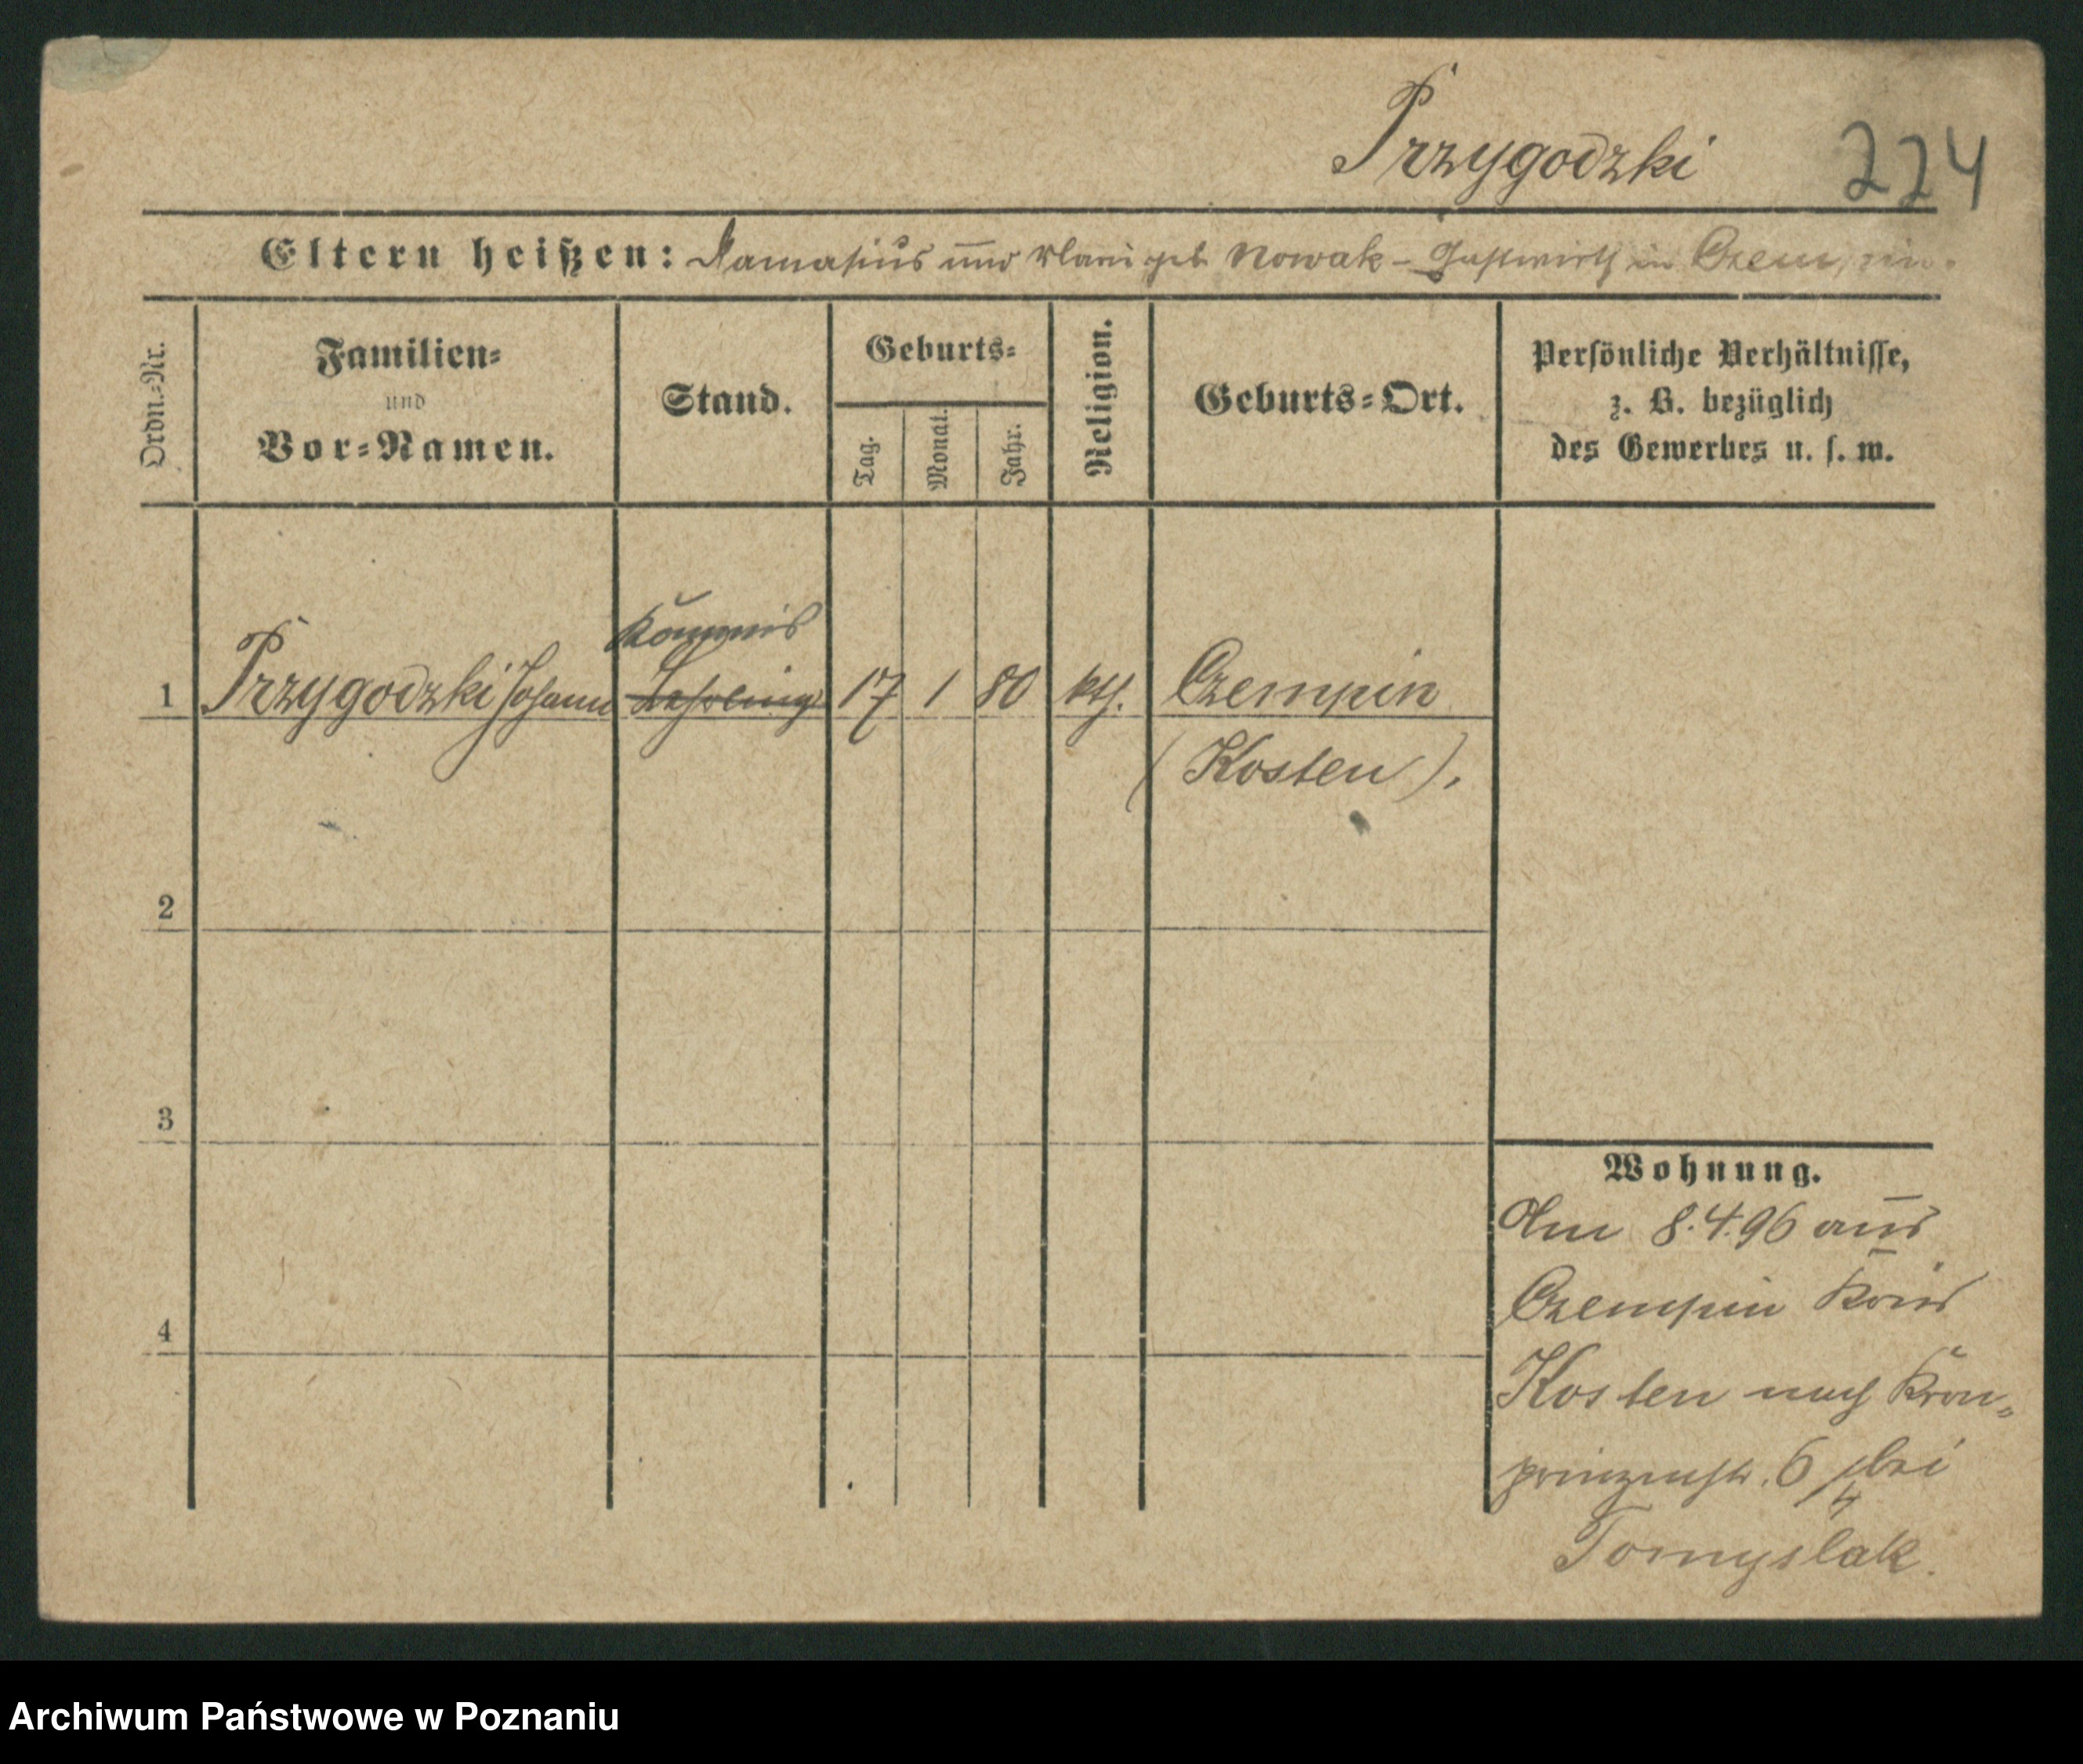 Przygodzki 224
Eltern heißen: Damasius und geb Nowak - Gastwirth in Czempin.
Ordn.=Nr.
Familien=
und
Vor=Namen.
Stand.
Geburts=
Tag.
Monat.
Jahr.
Religion.
Geburts=Ort.
Persönliche Verhältnisse,
z. B. bezüglich
des Gewerbes u. s. w.
Kommis
1 Przygodzki Johann Lehrling 17 1 80 kth. Czempin
(Kosten).
2
3
4
Wohnung.
Am 8.4.96 aus
Czempin Kreis
Kosten nach Kron=
prinzenstr. 6 bei
Tomyslak.
Archiwum Państwowe w Poznaniu